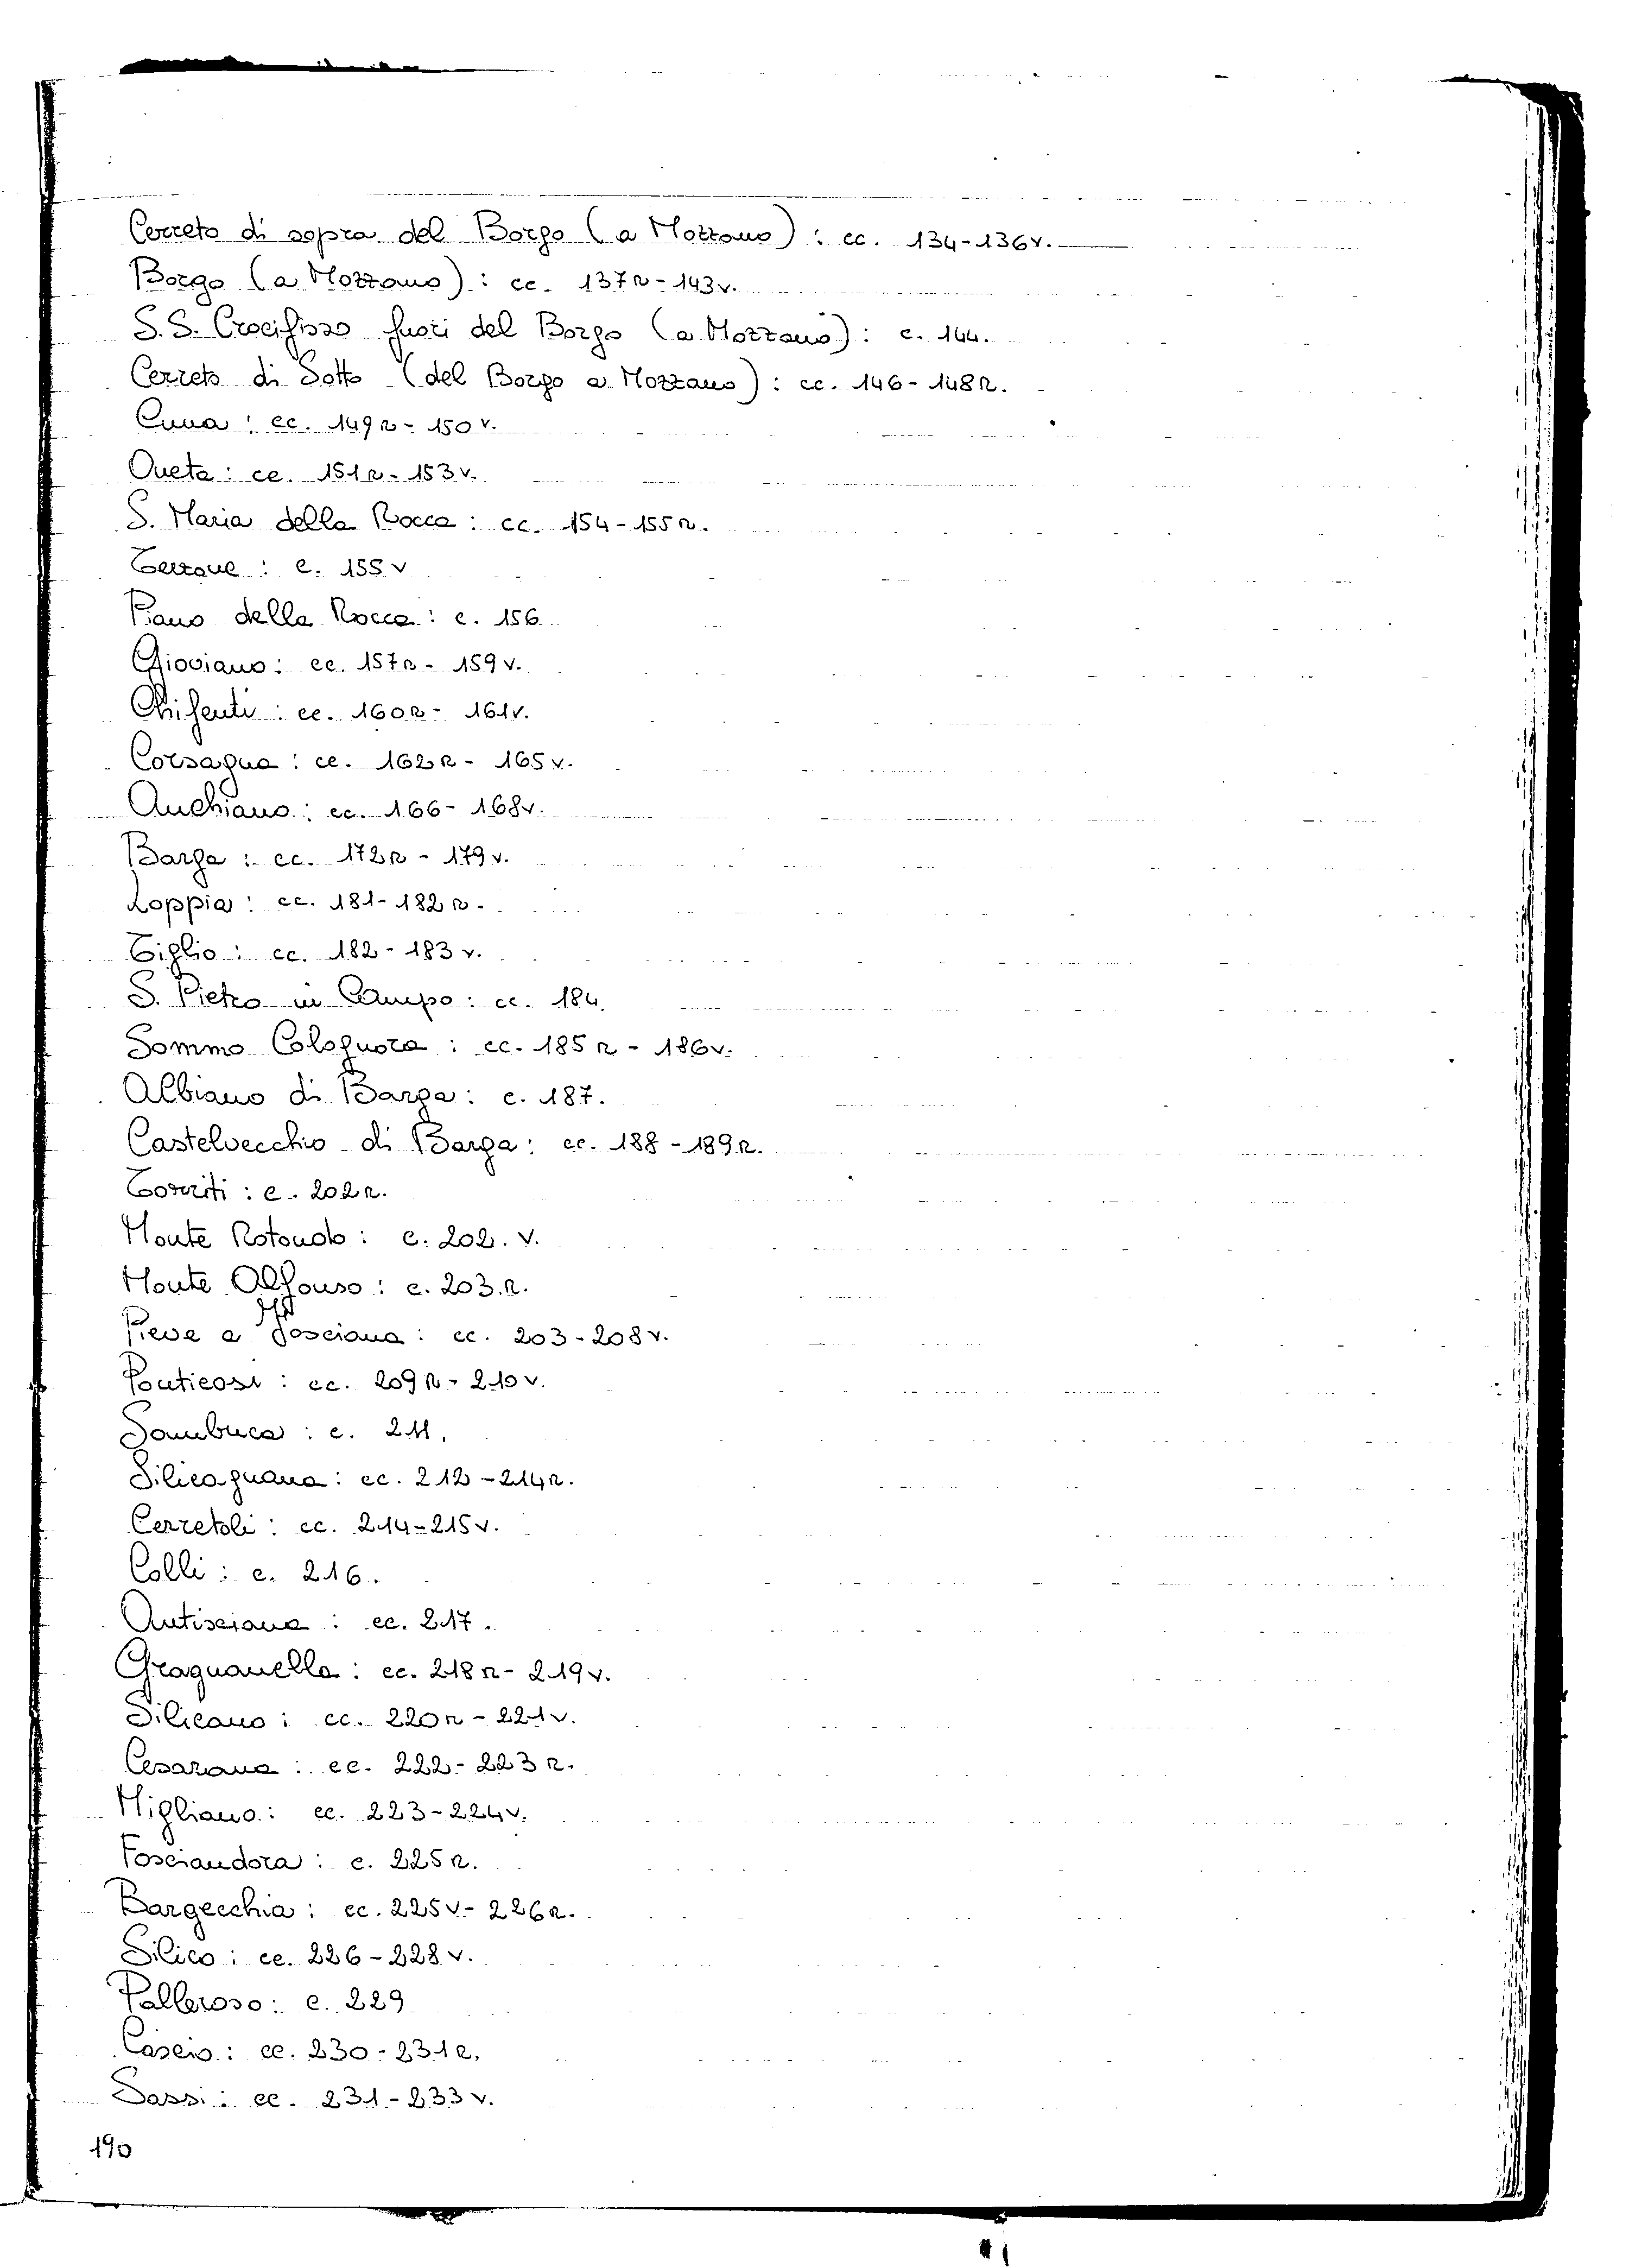 Cerreto di sopra del Borgo (a Mozzano): cc. 134-136v.
Borgo (a Mozzano): cc. 137r-143v.
S.S. Crocifisso fuori del Borgo (a Mozzano): c. 144.
Cerreto di Sotto (del Borgo a Mozzano): cc. 146-148r.
Cuna: cc. 149r-150v.
Oneta: cc. 151r-153v.
S. Maria della Rocca: cc. 154-155r.
Terzone: c. 155v
Piano della Rocca: c. 156
Gioviano: cc. 157r-159v.
Chifenti: cc. 160r-161v.
Corsagna: cc. 162r-165v.
Anchiano: cc. 166-168v.
Barga: cc. 172r-179v.
Loppia: cc. 181-182r.
Tiglio: cc. 182-183v.
S. Pietro in Campo: cc. 184.
Sommo Colognora: cc. 185r-186v.
Albiano di Barga: c. 187.
Castelvecchio di Barga: cc. 188-189r.
Torriti: c. 202r.
Monte Rotondo: c. 202.v.
Monte Alfonso: c. 203.r.
Pieve a Fosciana: cc. 203-208v.
Ponticosi: cc. 209r-210v.
Sambuca: c. 211.
Silicagnana: cc. 212-214r.
Cerretoli: cc. 214-215v.
Colli: c. 216.
Antisciana: cc. 217.
Gragnanella: cc. 218r-219v.
Silicano: cc. 220r-221v.
Cesarana: cc. 222-223r.
Migliano: cc. 223-224v.
Fosciandora: c. 225r.
Bargecchia: cc. 225v-226r.
Silico: cc. 226-228v.
Palleroso: c. 229
Cascio: cc. 230-231r.
Sassi: cc. 231-233v.
190